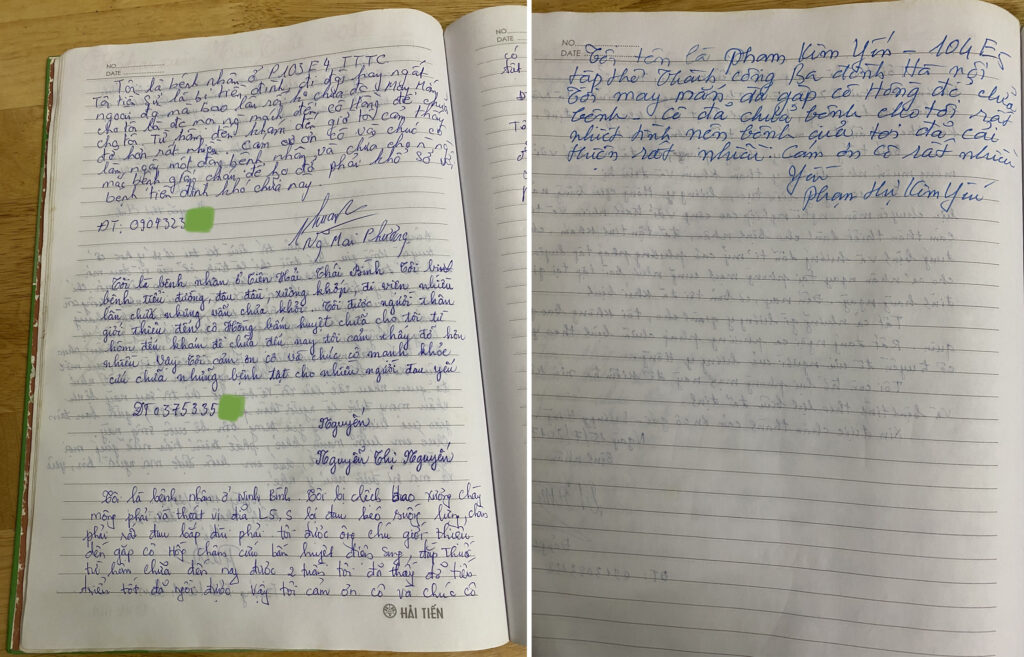 NO.
DATE
Tôi là bệnh nhân ở P103 E4 TTTC
Tôi tiền sử là bị tiền đình, đi đại hay ngất
ngoài ra mà bao lần rồi hi chưa đỡ May Mắn
cho tôi là được mọi người mách đến cô Hồng để chữa
cho tôi. Từ hôm đến khám đến giờ tôi cảm thấy
đỡ hơn rất nhiều. Cảm ơn cô và chúc cô
làm ngày một đông bệnh nhân và chữa cho n ng
mắc bệnh giống cháu để họ đỡ phải khổ sở vì
bệnh tiền đình khó chữa này.
ĐT: 0904323
Ng Mai Phương
Tôi là bệnh nhân ở Tiền Hải Thái Bình Tôi bị
bệnh tiểu đường, đau đầu, xương khớp, đi viện nhiều
lần chữa nhưng vẫn chưa khỏi. Tôi được người thân
giới thiệu đến cô Hồng bấm huyệt chữa cho tôi từ
hôm đến khám để chữa đến nay tôi cảm thấy đỡ hơn
nhiều. Vậy Tôi cảm ơn cô và chúc cô mạnh khỏe
cứu chữa những bệnh tật cho nhiều người đau yếu
ĐT 0375335
Nguyễn
Nguyễn Thị Nguyễn
Tôi là bệnh nhân ở Ninh Bình. Tôi bị chèn bao xương chậy
mông phải và thoát vị đĩa L5, S1 đau kéo xuống lưng, chân
phải rất đau bắp đùi phải tôi được ông chú giới thiệu
đến gặp cô Hồg châm cứu bấm huyệt điện sung, đắp thuốc
từ hôm chữa đến nay được 2 tuần tôi đã thấy đỡ tiến
triển tốt đã ngồi được, vậy tôi cảm ơn cô và chúc cô
HẢI TIẾN
NO.
DATE
có
rất
NO.
DATE
Tôi tên là Phạm Kim Yến - 104 E5
tập thể Thành công Ba đình Hà nội
Tôi may mắn đã gặp cô Hồng để chữa
bệnh - Cô đã chữa bệnh cho tôi rất
nhiệt tình nên bệnh của tôi đã cải
thiện rất nhiều. Cảm ơn cô rất nhiều
Yến
Phạm Thị Kim Yến